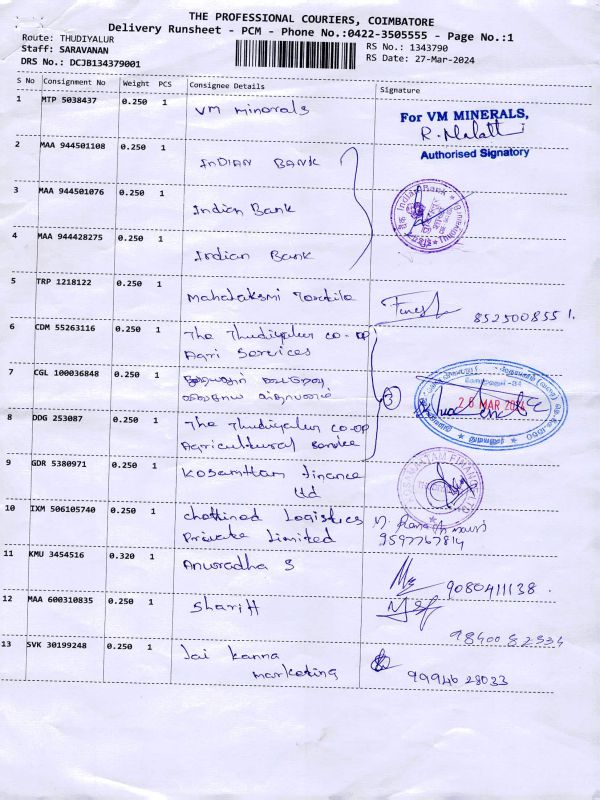 THE PROFESSIONAL COURIERS, COIMBATORE
Delivery Runsheet - PCM - Phone No.:0422-3505555 - Page No.:1
Route: THUDIYALUR
Staff: SARAVANAN
RS No.: 1343790
DRS No.: DCJB134379001
RS Date: 27-Mar-2024
S No Consignment No Weight PCS Consignee Details Signature
1 MTP 5038437 0.250 1 VM Minerals
For VM MINERALS,
R. Malathi
Authorised Signatory
2 MAA 944501108 0.250 1 INDIAN BANK
3 MAA 944501076 0.250 1 Indian Bank
Indian Bank
4 MAA 944428275 0.250 1 Indian Bank
5 TRP 1218122 0.250 1 Mahalaksmi Textile
8525008551.
6 CDM 55263116 0.250 1 The Thudiyalur co-op
Agri Services
7 CGL 100036848 0.250 1
3
26 MAR 2024
8 DDG 253087 0.250 1 The Thudiyalur co-op
Agricultural Service
9 GDR 5380971 0.250 1 Kosamttam finance
Ltd
10 IXM 506105740 0.250 1 chettinad Logistics
Private Limited
9597767814
11 KMU 3454516 0.320 1 Anuradha S
9080411138.
12 MAA 600310835 0.250 1 Shariff
13 SVK 30199248 0.250 1 Jai Kanna
marketing
9994628033